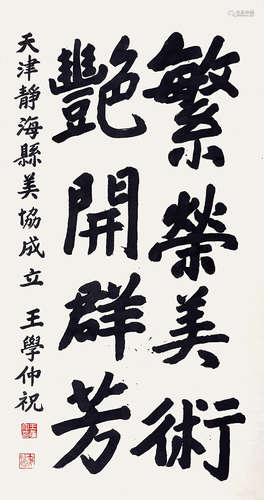 繁榮美術
艷開群芳
天津靜海縣美協成立 王學仲祝